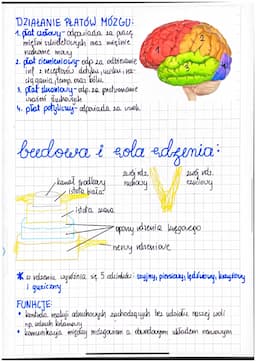 DZIAŁANIE PŁATÓW MÓZGU:
1. płat czołowy - odpowiada za pracę
mięśni szkieletowych oraz mięśnie
ruchowe mowy
2. płat ciemieniowy - odp. za odbieranie
inf. z receptorów dotyku, ucisku,
temp. oraz bólu
3. płat skroniowy - odp. za
wrażeń słuchowych
4. płat potyliczny - odpowiada za wzrok
1
2
3
4
budowa i rola rdzenia:
kanał środkowy
istota biała
istota szara
opony rdzenia kręgowego
nerwy rdzeniowe
zwój rdz.
ruchowy
zwój rdz.
czuciowy
* w rdzeniu wyróżnia się 5 odcinków: szyjny, piersiowy, lędźwiowy, krzyżowy
i guziczny
FUNKCJE:
• kontrola reakcji odruchowych zachodzących bez udziału naszej woli
np. odruch kolanowy
• komunikacja między mózgowiem a obwodowym układem nerwowym